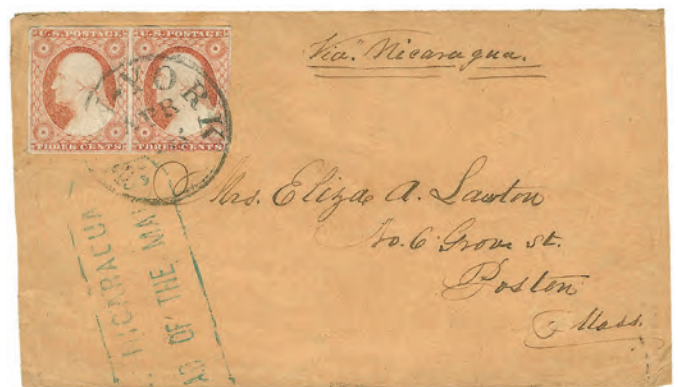 U.S. POSTAGE U.S. POSTAGE
THREE CENTS THREE CENTS
YORK
Via. Nicaragua.
Mrs. Eliza A. Lawton
No. 6 Grove st.
Boston
Mass.
NICARAGUA
OF THE MAI